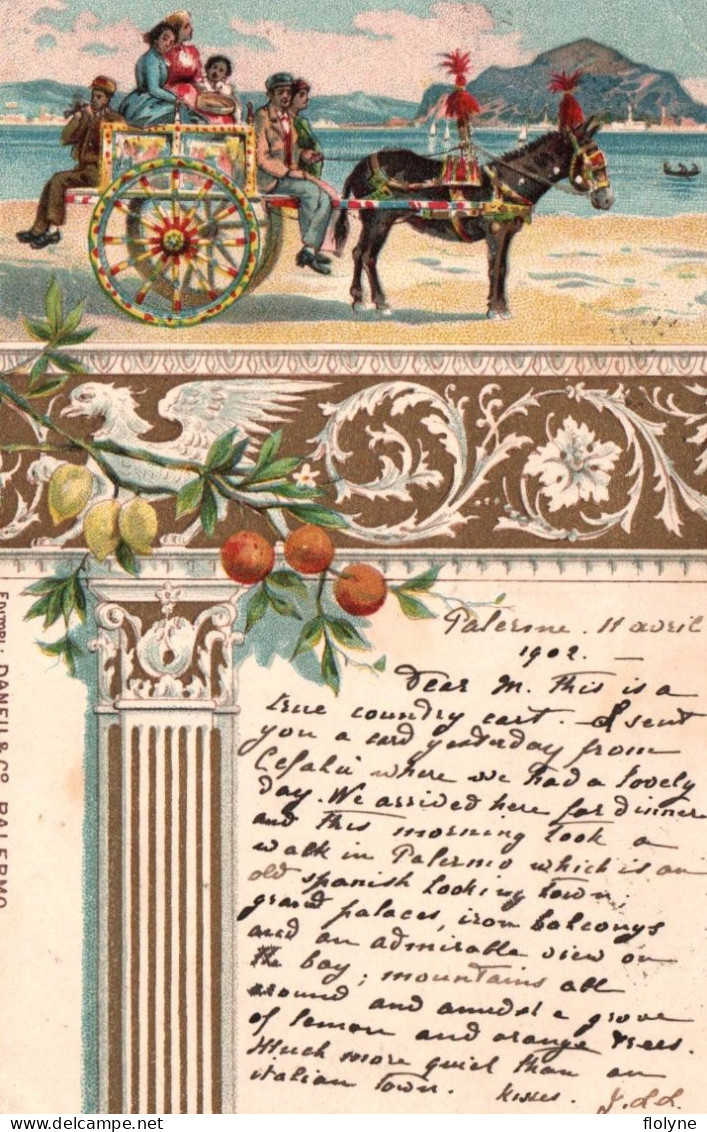 Palerme. 11 avril
1902. —
Dear M. This is a
true country cart. I sent
you a card yesterday from
Cefalù where we had a lovely
day. We arrived here for dinner
and this morning took a
walk in Palermo which is an
old spanish looking town,
grand palaces, iron balconys
and an admirable view on
the bay; mountains all
around and amidst a grove
of lemon and orange trees.
Much more quiet than an
italian town. Kisses.
DANEU & Co. PALERMO
flolyne